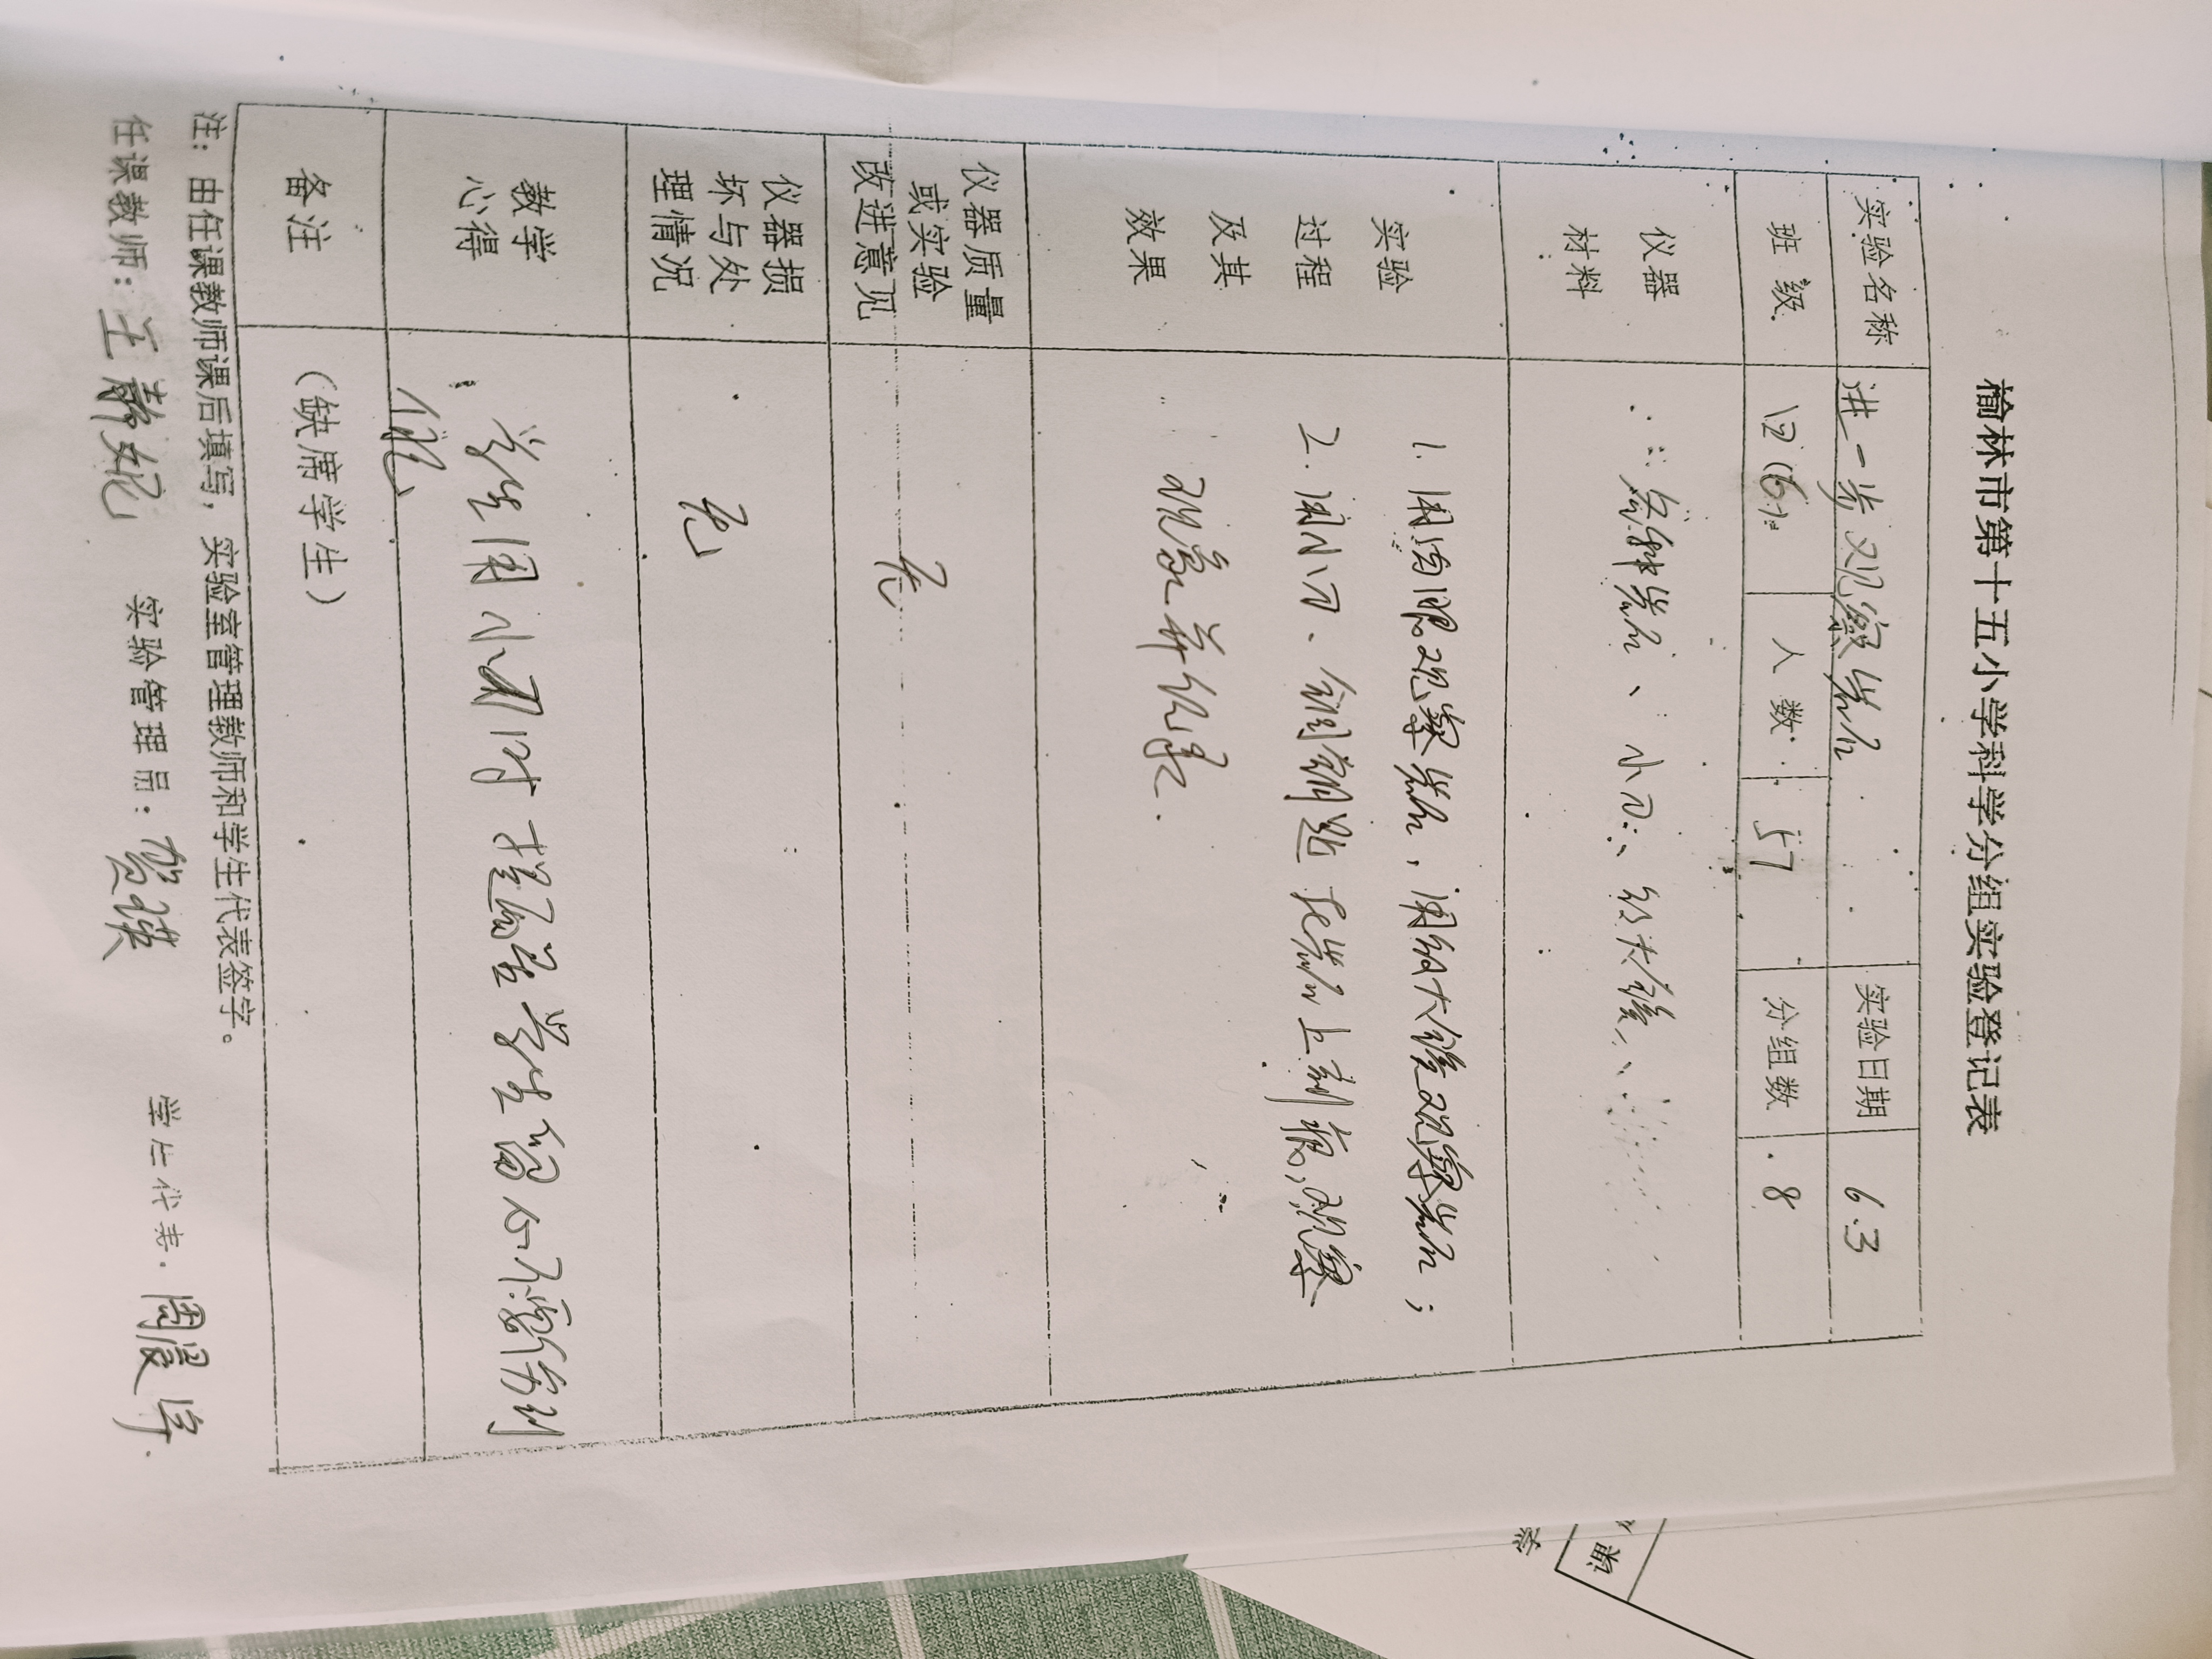 榆林市第十五小学科学分组实验登记表
实验名称 进一步观察岩石 实验日期 6.3
班级 四(6) 人数 57 分组数 8
仪器
材料
各种岩石、小刀、放大镜、
实验
过程
及其
效果
1. 用肉眼观察岩石，用放大镜观察岩石；
2. 用小刀、铜钥匙在岩石上刻痕，观察
现象并记录.
仪器质量
或实验
改进意见
无
仪器损
坏与处
理情况
无
教学
心得
学生用小刀时提醒学生留心不要伤到
自己
备注 （缺席学生）
注：由任课教师课后填写，实验室管理教师和学生代表签字。
任课教师：王静妮 实验管理员：贺瑛 学生代表：周晨宇.
课
学